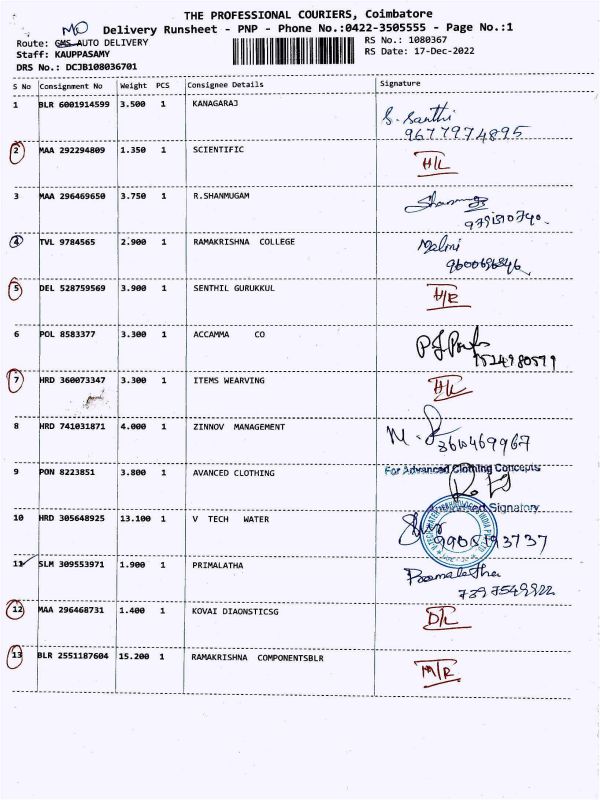 THE PROFESSIONAL COURIERS, Coimbatore
MO Delivery Runsheet - PNP - Phone No.:0422-3505555 - Page No.:1
Route: GMS AUTO DELIVERY RS No.: 1080367
Staff: KAUPPASAMY RS Date: 17-Dec-2022
DRS No.: DCJB108036701
S No Consignment No Weight PCS Consignee Details Signature
1 BLR 6001914599 3.500 1 KANAGARAJ
S. Santhi
9677974895
2 MAA 292294809 1.350 1 SCIENTIFIC
3 MAA 296469650 3.750 1 R.SHANMUGAM
4 TVL 9784565 2.900 1 RAMAKRISHNA COLLEGE
9600696846
5 DEL 528759569 3.900 1 SENTHIL GURUKKUL
6 POL 8583377 3.300 1 ACCAMMA CO
7 HRD 360073347 3.300 1 ITEMS WEARVING
8 HRD 741031871 4.000 1 ZINNOV MANAGEMENT
9 PON 8223851 3.800 1 AVANCED CLOTHING
For Advanced Clothing Concepts
Authorised Signatory
10 HRD 305648925 13.100 1 V TECH WATER
11 SLM 309553971 1.900 1 PRIMALATHA
7397549922
12 MAA 296468731 1.400 1 KOVAI DIAONSTICSG
D/L
13 BLR 2551187604 15.200 1 RAMAKRISHNA COMPONENTSBLR